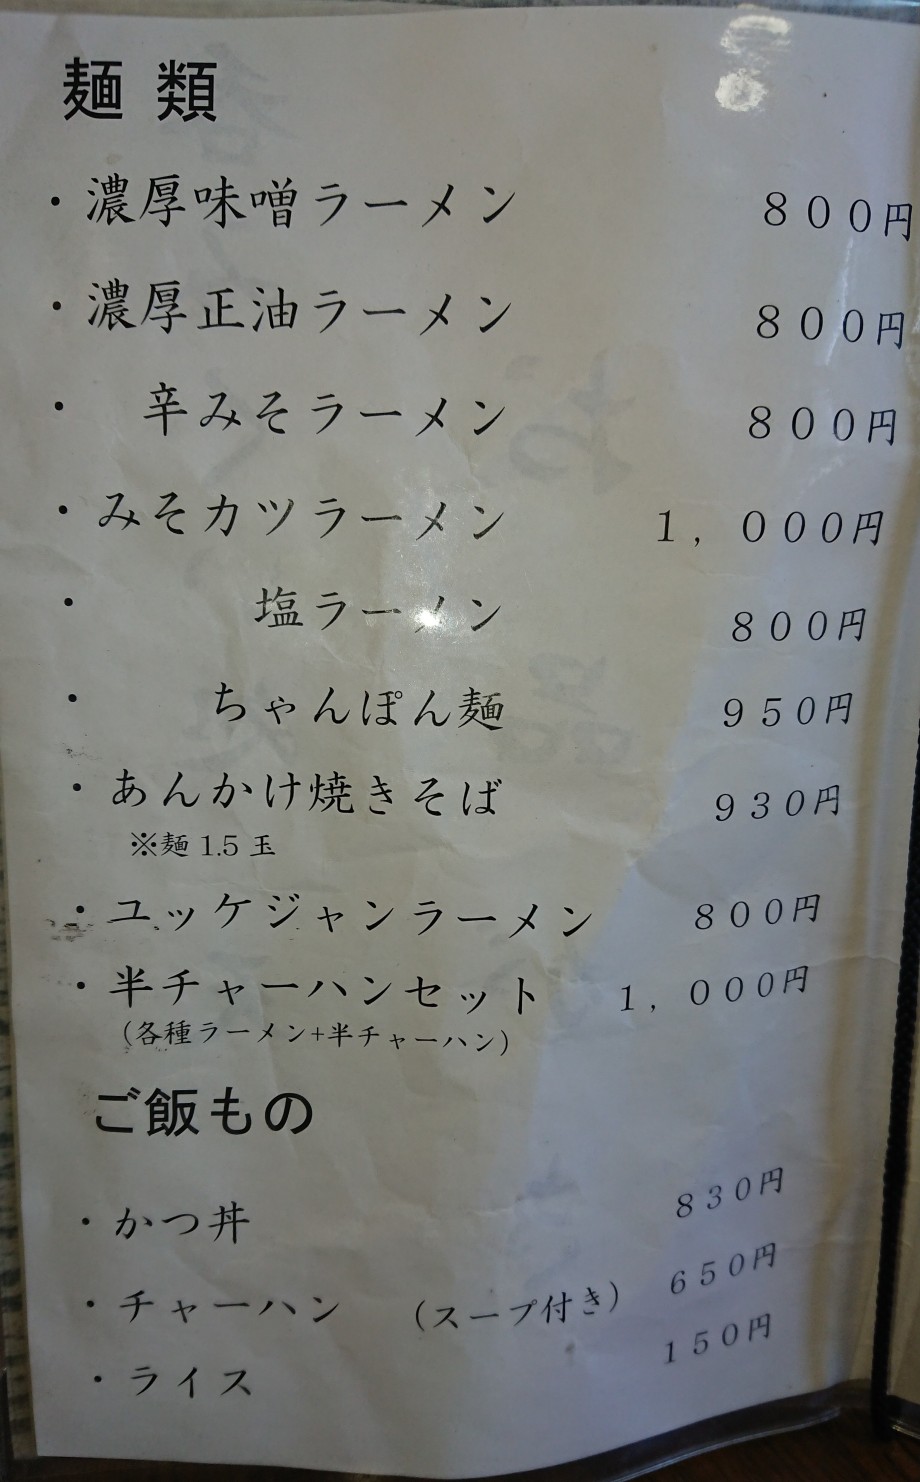 麺 類
・濃厚味噌ラーメン 800円
・濃厚正油ラーメン 800円
・ 辛みそラーメン 800円
・みそカツラーメン 1,000円
・ 塩ラーメン 800円
・ ちゃんぽん麺 950円
・あんかけ焼きそば 930円
※麺 1.5 玉
・ユッケジャンラーメン 800円
・半チャーハンセット 1,000円
(各種ラーメン+半チャーハン)
ご飯もの
・かつ丼 830円
・チャーハン (スープ付き) 650円
・ライス 150円